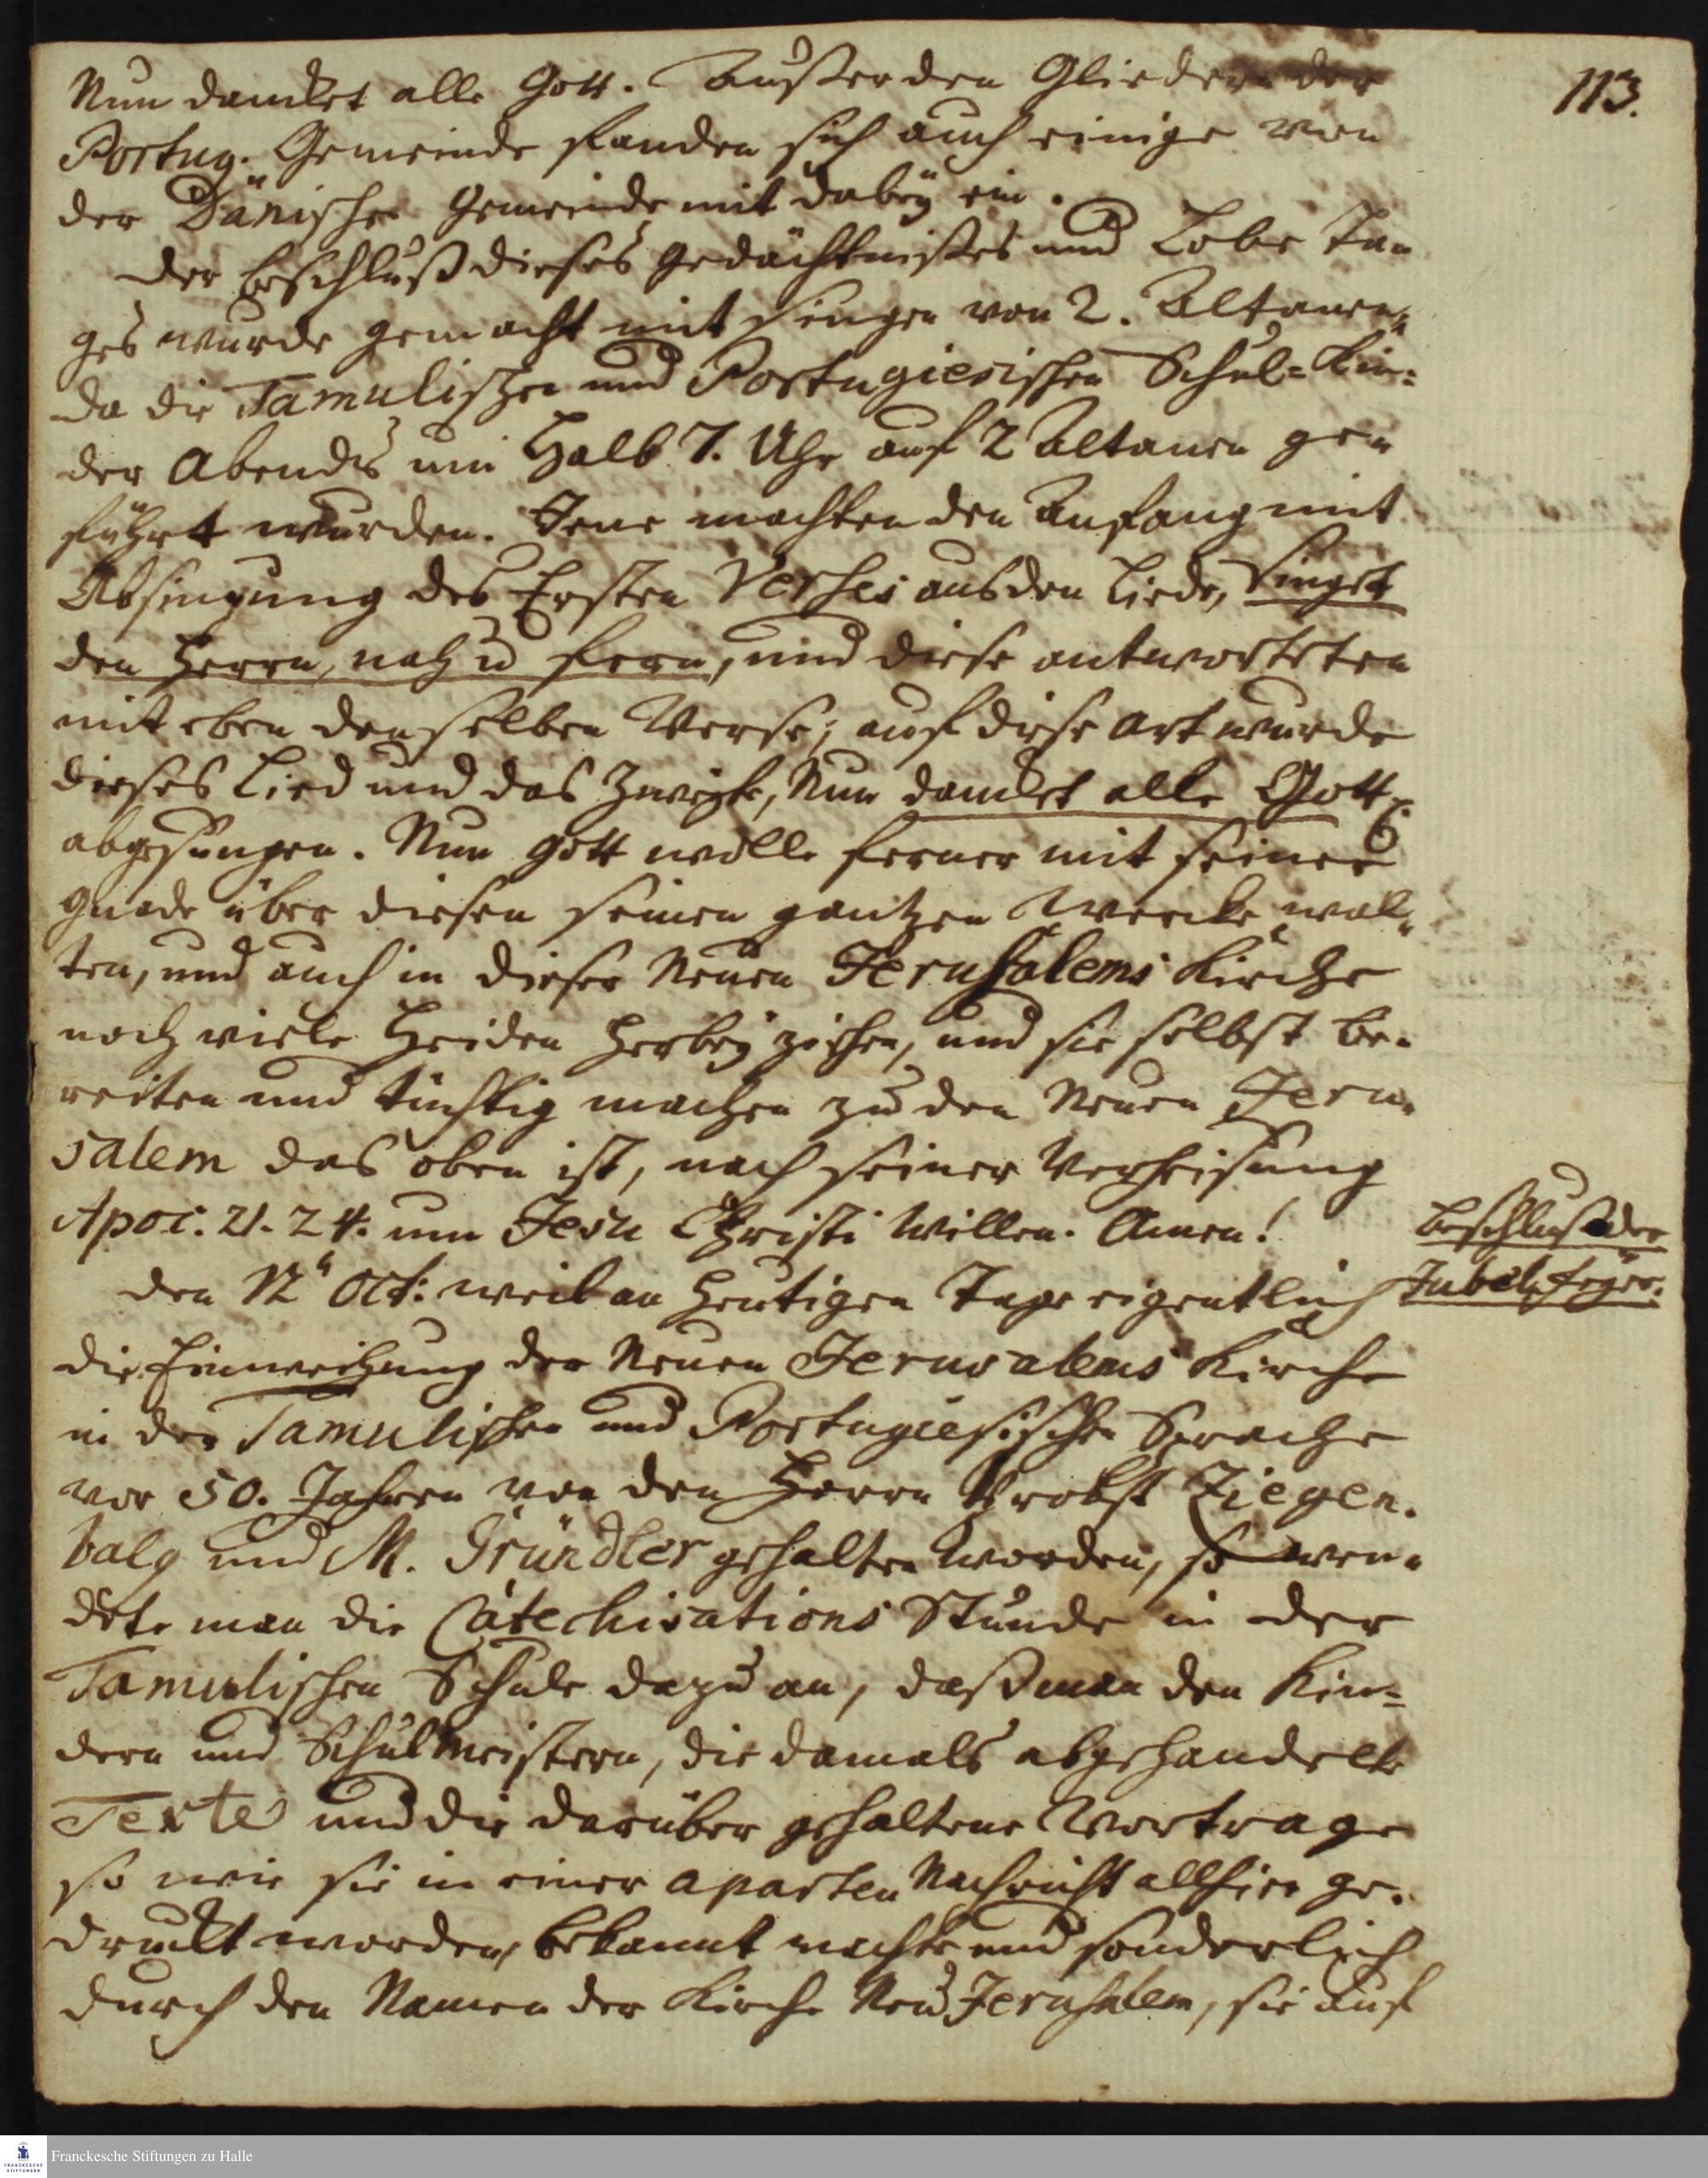 113.
Nun dancket alle Gott. Außer den Gliedern der
Portug. Gemeinde fanden sich auch einige von
der Dänischen Gemeinde mit dabey ein.
Der Beschluß dieses Gedächtnißes und Lobe Ta„
ges wurde gemacht mit singen von 2. Altanen„
da die Tamulischen und Portugiesischen Schul=Kin=
der Abends um Halb 7. Uhr auf 2 Altanen ge„
führt wurden. Jene machten den Anfang mit
Absingung des Ersten Verses aus den Liede, Singet
den Herrn, nah u fern, und diese antworteten
mit eben denselben Verse; auf diese Art wurde
dieses Lied und das Zweyte, Nun dancket alle Gott
abgesungen. Nun Gott wolle ferner mit seiner
Gnade über diesen seinen gantzen Wercke wal„
ten, und auch in dieser Neuen Jerusalems Kirche
noch viele Heiden herbey ziehen, und sie selbst be„
reiten und tüchtig machen zu den Neuen Jeru„
salem das oben ist, nach seiner Verheisung
Apoc. 21. 24. um Jesu Christi Willen. Amen!
Beschluß der
Jubel, feyer.
den 12" Oct: weil an heutigen Tage eigentlich
die Einweihung der Neuen Jerusalems Kirche
in der Tamulischen und Portugiesischen Sprache
vor 50. Jahren von den Herrn Probst Ziegen„
balg und M. Gründler gehalten worden, so wen„
dete man die Catechisations Stunde in der
Tamulischen Schule dazu an, daß man den Kin=
dern und Schulmeistern, die damals abgehandelte
Texte und die darüber gehaltene Vortrage
so wie sie in einer aparten Nachricht allhier ge„
druckt worden, bekannt machte und sonderlich
durch den Namen der Kirche Neu Jerusalem, sie auf
Franckesche Stiftungen zu Halle